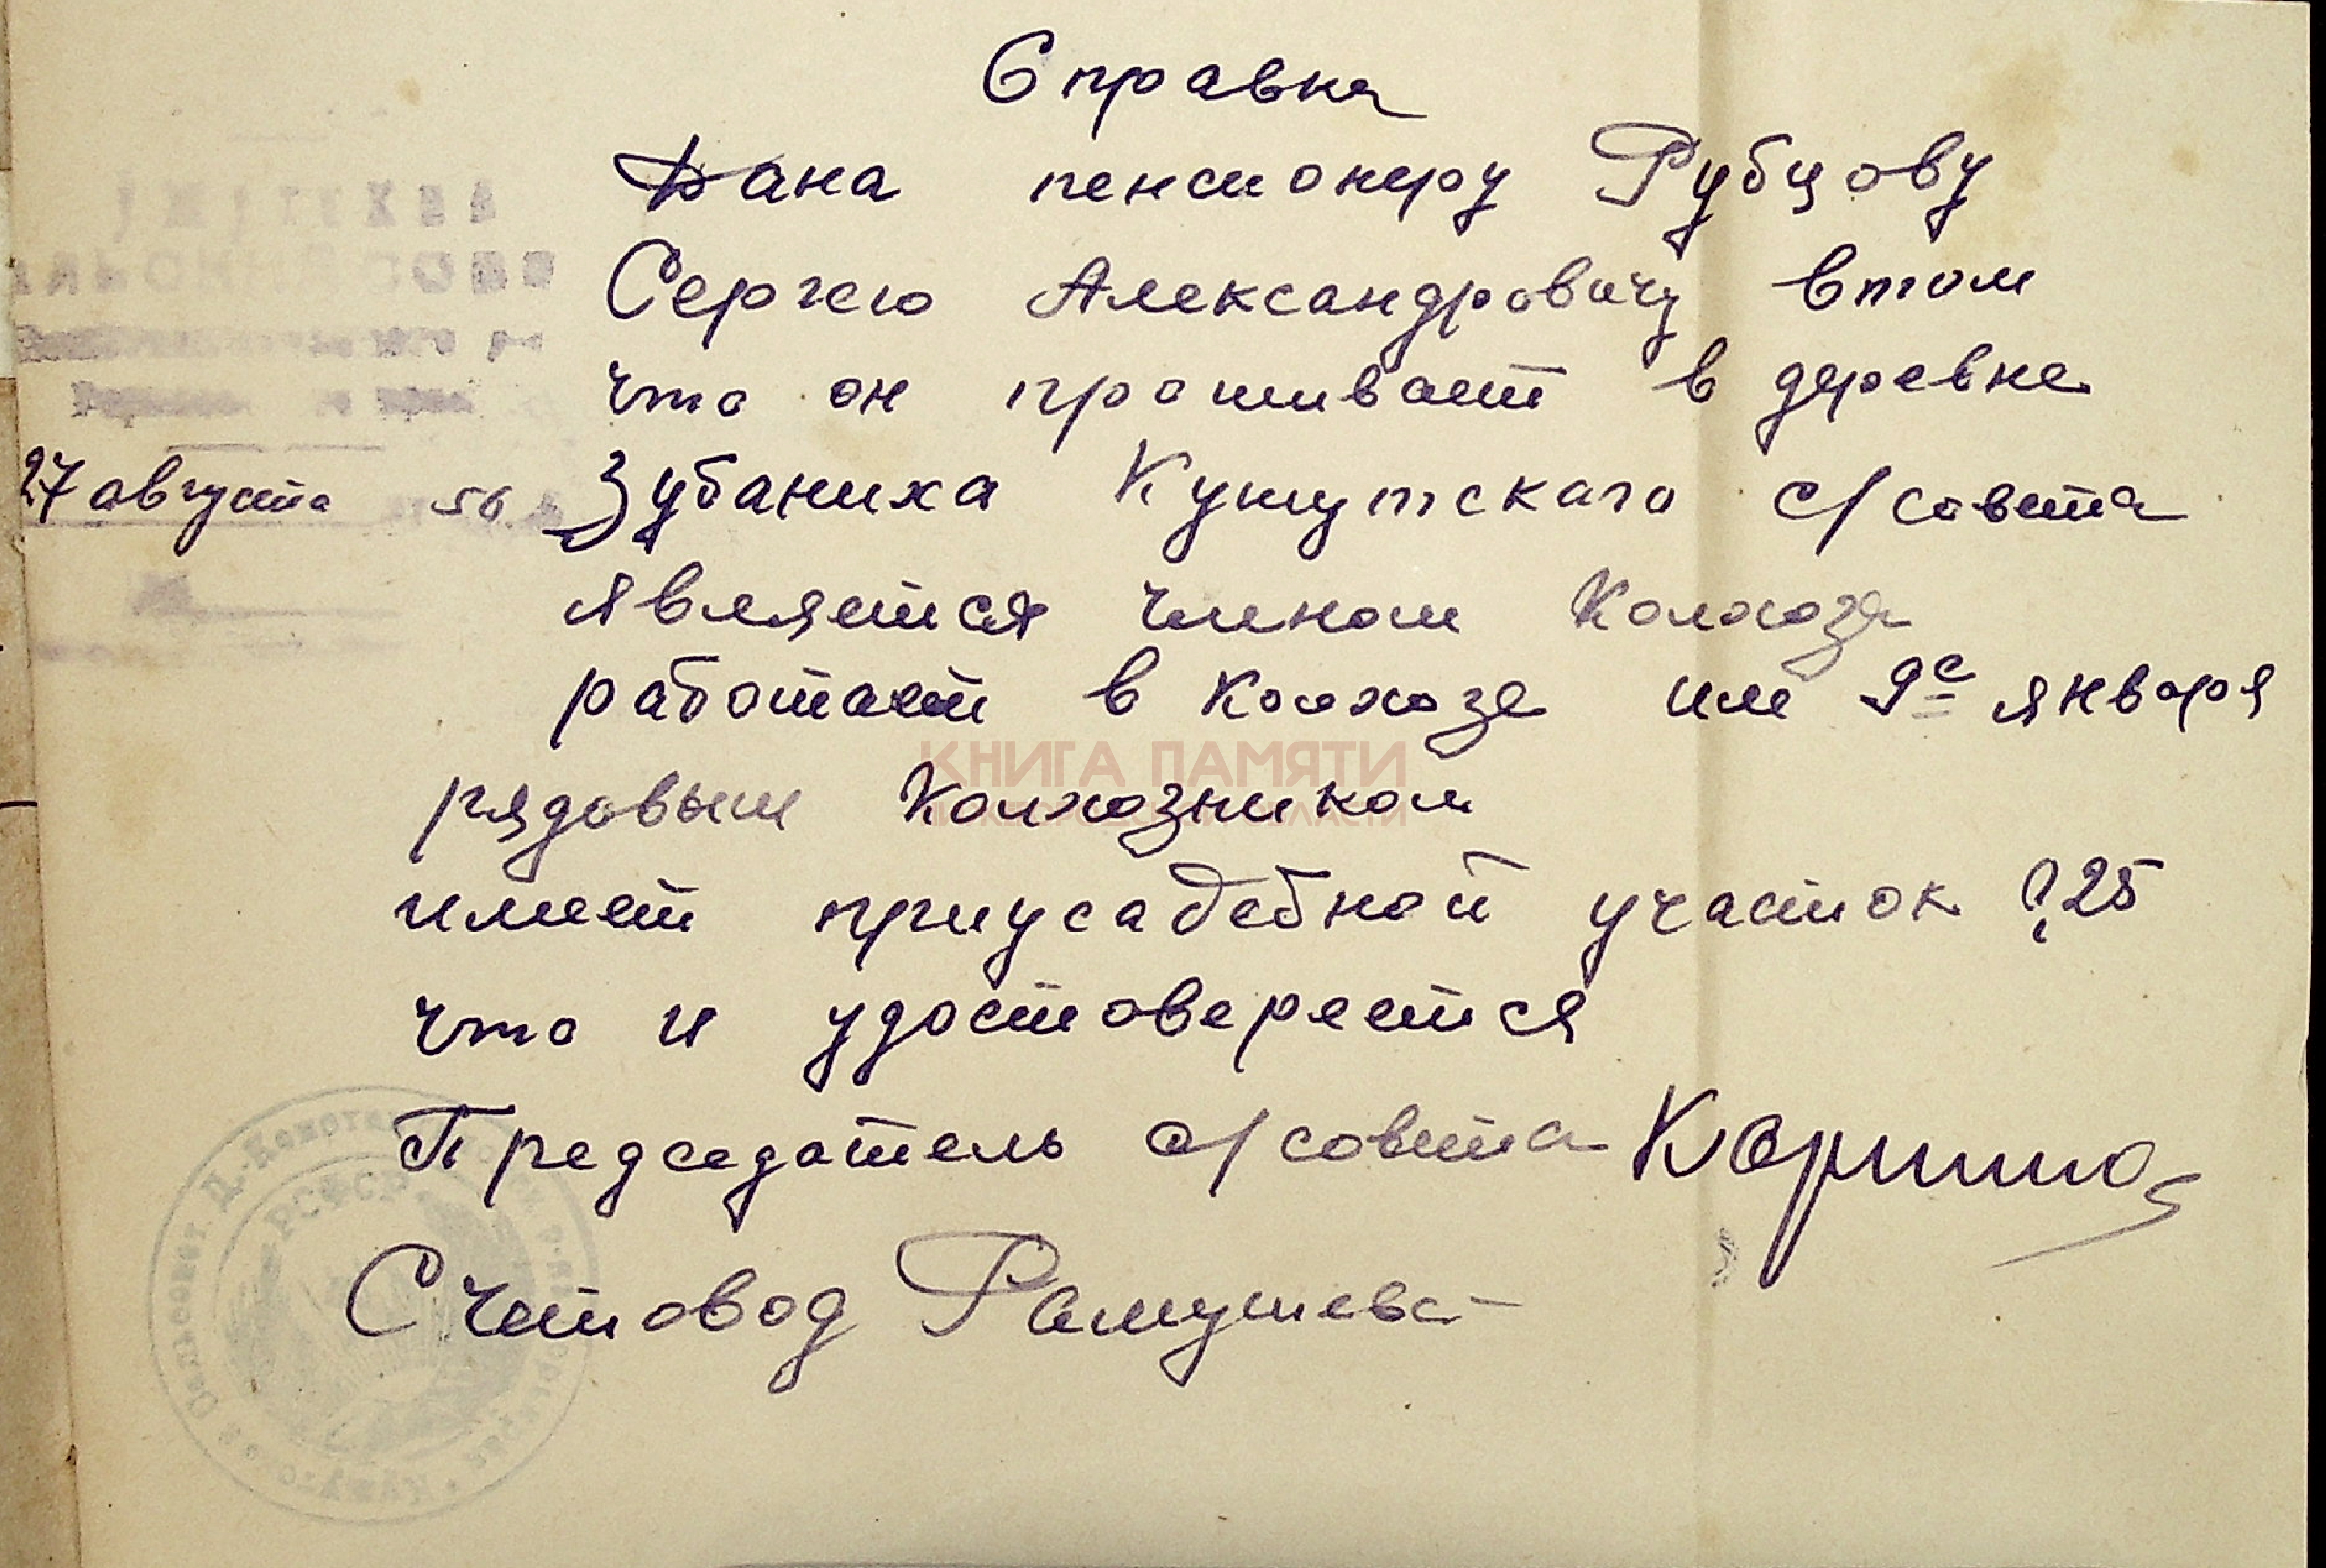 Справка
Дана пенсионеру Рубцову
Сергею Александровичу втом
что он проживает в деревне
27 августа 56 Зубаниха Кужутского с/совета
является членом Колхоза
работает в колхозе им 9е января
рядовым Колхозником
имеет приусадебной участок 0,25
что и удостоверется
КНИГА ПАМЯТИ
Председатель с/совета
Счетовод
РСФСР